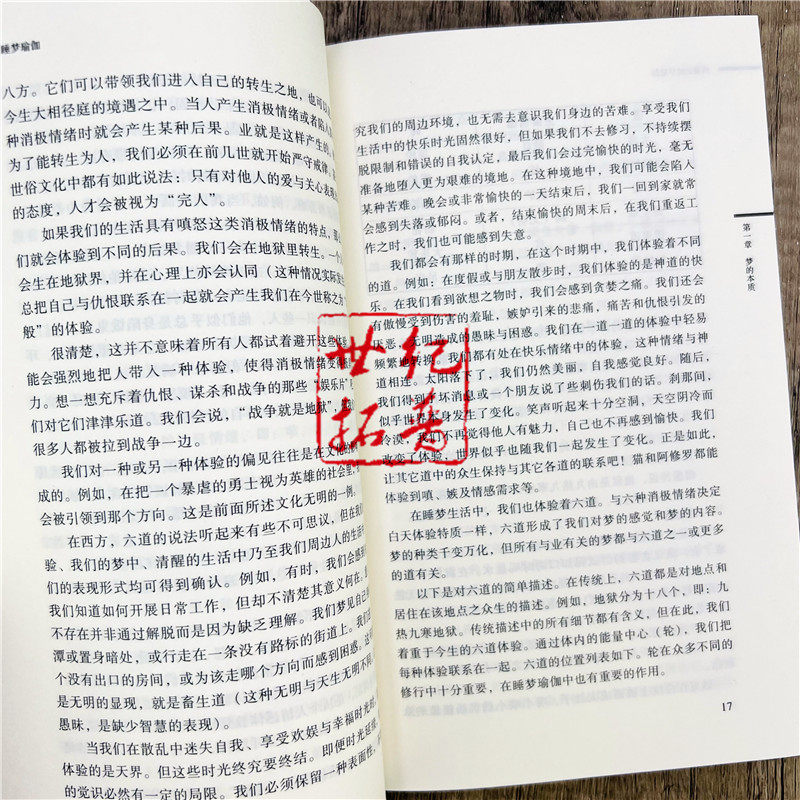 睡梦瑜伽
八方。它们可以带领我们进入自己的转生之地，也可以
今生大相径庭的境遇之中。当人产生消极情绪或者陷入
种消极情绪时就会产生某种后果。业就是这样产生的。
为了能转生为人，我们必须在前几世就开始严守戒律，
世俗文化中都有如此说法：只有对他人的爱与关心表现
的态度，人才会被视为“完人”。
如果我们的生活具有嗔怒这类消极情绪的特点，那
们就会体验到不同的后果。我们会在地狱里转生。一个
会生在地狱界，并在心理上亦会认同（这种情况实际发
总把自己与仇恨联系在一起就会产生我们在今世称之为
般”的体验。
很清楚，这并不意味着所有人都试着避开这些体
能会强烈地把人带入一种体验，使得消极情绪变
力。想一想充斥着仇恨、谋杀和战争的那些“娱乐片”
们对它们津津乐道。我们会说，“战争就是地狱”，
很多人都被拉到战争一边。
我们对一种或另一种体验的偏见往往是在文化的
成的。例如，在把一个暴虐的勇士视为英雄的社会里，
会被引领到那个方向。这是前面所述文化无明的一例。
在西方，六道的说法听起来有些不可思议，但在我
验、我们的梦中、清醒的生活中乃至我们周边人的生活
们的表现形式均可得到确认。例如，有时，我们会感
我们知道如何开展日常工作，但却不清楚其意义何在。
不存在并非通过解脱而是因为缺乏理解。我们梦见自己
潭或置身暗处，或行走在一条没有路标的街道上。我
个没有出口的房间，或为该走哪个方向而感到困惑。这
是无明的显现，就是畜生道（这种无明与天生无明不同，
愚昧，是缺少智慧的表现）。
当我们在散乱中迷失自我、享受欢娱与幸福时光时，
体验的是天界。但这些时光终究要终结。即便时光延续，
的觉识必然有一定的局限。我们必须保留一种表面性，不
究我们的周边环境，也无需去意识我们身边的苦难。享受我们
生活中的快乐时光固然很好，但如果我们不去修习，不持续摆
脱限制和错误的自我认定，最后我们会过完愉快的时光，毫无
准备地堕入更为艰难的境地。在这种境地中，我们可能会陷入
某种苦难。晚会或非常愉快的一天结束后，我们一回到家就常
会感到失落或郁闷。或者，结束愉快的周末后，在我们重返工
作之时，我们也可能感到失意。
我们都会有那样的时期，在这个时期中，我们体验着不同
的道。例如：在度假或与朋友散步时，我们体验的是神道的快
乐。在我们看到欲想之物时，我们会感到贪婪之痛。我们还会
有傲慢受到伤害的羞耻，嫉妒引来的悲痛，痛苦和仇恨引发的
厌恶，无明造成的愚昧与困惑。我们在一道一道的体验中轻易
频繁地转换。我们都有处在快乐情绪中的体验，这种情绪与神
道相连。太阳落下了，我们仍然美丽，自我感觉良好。随后，
我们得到个坏消息或一个朋友说了些刺伤我们的话。刹那间，
似乎世界本身发生了变化。笑声听起来十分空洞，天空阴冷而
冷漠，我们不再觉得他人有魅力，自己也不再感到愉快。我们
改变了体验，世界似乎也随我们一起发生了变化。正是如此，
让其它道中的众生保持与其它各道的联系吧！猫和阿修罗都能
体验到嗔、嫉及情感需求等。
在睡梦生活中，我们也体验着六道。与六种消极情绪决定
白天体验特质一样，六道形成了我们对梦的感觉和梦的内容。
梦的种类千变万化，但所有与业有关的梦都与六道之一或更多
的道有关。
以下是对六道的简单描述。在传统上，六道都是对地点和
居住在该地点之众生的描述。例如，地狱分为十八个，即：九
热九寒地狱。传统描述中的所有细节都有含义，但在此，我们
着重于今生的六道体验。通过体内的能量中心（轮），我们把
每种体验联系在一起。六道的位置列表如下。轮在众多不同的
修行中十分重要，在睡梦瑜伽中也有重要的作用。
第一章 梦的本质
17
世纪
拓普